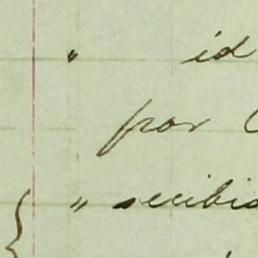 " id
por
" recibid